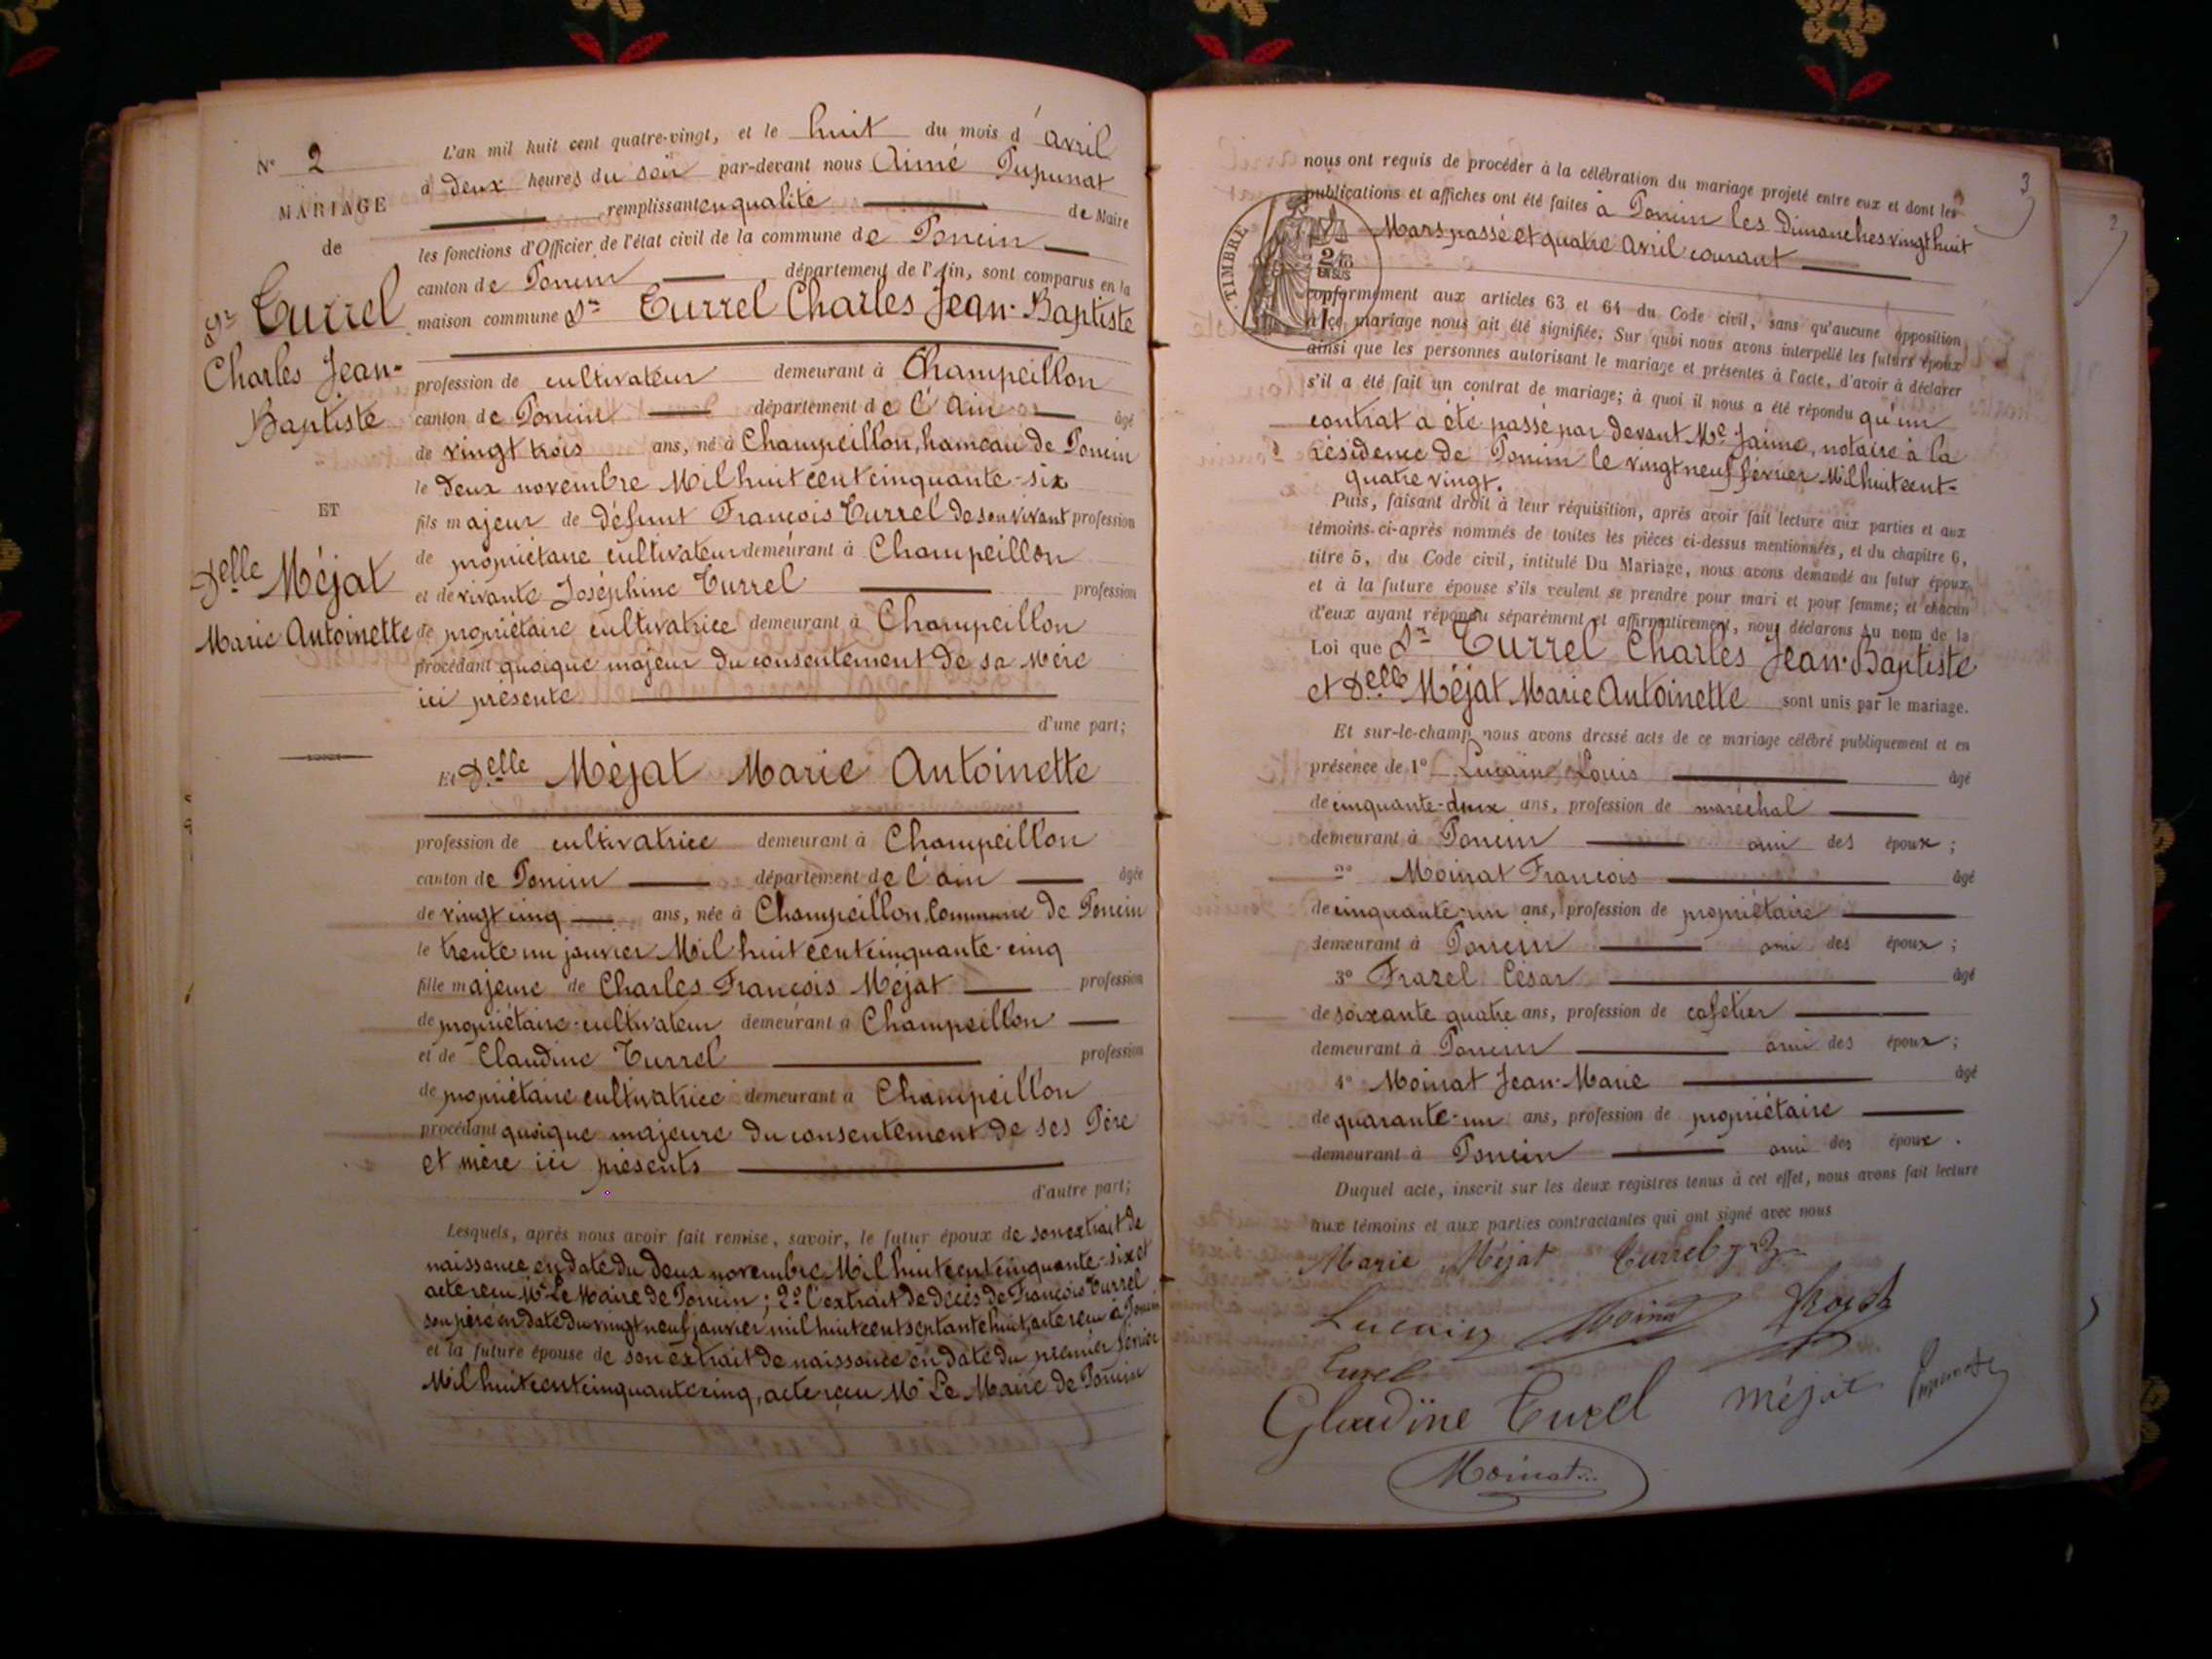 N° 2
MARIAGE
de
Sr Turrel
Charles Jean-
Baptiste
ET
Delle Méjat
Marie Antoinette
L'an mil huit cent quatre-vingt, et le huit du mois d'avril
à deux heures du soir par-devant nous Aimé
remplissant en qualité de Maire
les fonctions d'Officier de l'état civil de la commune de Poncin
canton de Poncin département de l'Ain, sont comparus en la
maison commune Sr Turrel Charles Jean-Baptiste
profession de cultivateur demeurant à Champeillon
canton de Poncin département de l'Ain âgé
de vingt trois ans, né à Champeillon, hameau de Poncin
le deux novembre Mil huit cent cinquante-six
fils majeur de défunt François Turrel de son vivant profession
de propriétaire cultivateur demeurant à Champeillon
et de vivante Joséphine Turrel profession
de propriétaire cultivatrice demeurant à Champeillon
procédant quoique majeur du consentement de sa Mère
ici présente
d'une part;
Et Delle Méjat Marie Antoinette
profession de cultivatrice demeurant à Champeillon
canton de Poncin département de l'Ain âgée
de vingt cinq ans, née à Champeillon, Commune de Poncin
le trente un janvier Mil huit cent cinquante-cinq
fille majeure de Charles François Méjat profession
de propriétaire-cultivateur demeurant à Champeillon
et de Claudine Turrel profession
de propriétaire cultivatrice demeurant à Champeillon
procédant quoique majeure du consentement de ses Père
et mère ici présents
d'autre part;
Lesquels, après nous avoir fait remise, savoir, le futur époux de son extrait de
naissance en date du deux novembre Mil huit cent cinquante-six et
acte reçu Mr Le Maire de Poncin; 2° l'extrait de décès de François Turrel
son père en date du vingt neuf janvier mil huit cent septante huit, acte reçu à Poncin
et la future épouse de son extrait de naissance en date du premier février
Mil huit cent cinquante cinq, acte reçu Mr Le Maire de Poncin
3
nous ont requis de procéder à la célébration du mariage projeté entre eux et dont les
publications et affiches ont été faites à Poncin les Dimanches vingt huit
Mars passé et quatre Avril courant
TIMBRE
conformément aux articles 63 et 64 du Code civil, sans qu'aucune opposition
à ce mariage nous ait été signifiée. Sur quoi nous avons interpellé les futurs époux
ainsi que les personnes autorisant le mariage et présentes à l'acte, d'avoir à déclarer
s'il a été fait un contrat de mariage; à quoi il nous a été répondu qu'un
contrat a été passé par devant Me Jaime, notaire à la
résidence de Poncin le vingt neuf février Mil huit cent-
quatre vingt.
Puis, faisant droit à leur réquisition, après avoir fait lecture aux parties et aux
témoins ci-après nommés de toutes les pièces ci-dessus mentionnées, et du chapitre 6,
titre 5, du Code civil, intitulé Du Mariage, nous avons demandé au futur époux
et à la future épouse s'ils veulent se prendre pour mari et pour femme; et chacun
d'eux ayant répondu séparément et affirmativement, nous déclarons au nom de la
Loi que Sr Turrel Charles Jean-Baptiste
et Delle Méjat Marie Antoinette sont unis par le mariage.
Et sur-le-champ nous avons dressé acte de ce mariage célébré publiquement et en
présence de 1° Lucain Louis âgé
de cinquante-deux ans, profession de maréchal
demeurant à Poncin ami des époux;
2° Moinat François âgé
de cinquante-un ans, profession de propriétaire
demeurant à Poncin ami des époux;
3° Frazel César âgé
de soixante quatre ans, profession de cafetier
demeurant à Poncin ami des époux;
4° Moinat Jean-Marie âgé
de quarante-un ans, profession de propriétaire
demeurant à Poncin ami des époux.
Duquel acte, inscrit sur les deux registres tenus à cet effet, nous avons fait lecture
aux témoins et aux parties contractantes qui ont signé avec nous
Marie Méjat Turrel
Lucain Moinat
Turel
Glaudine Turel méjat
Moinat